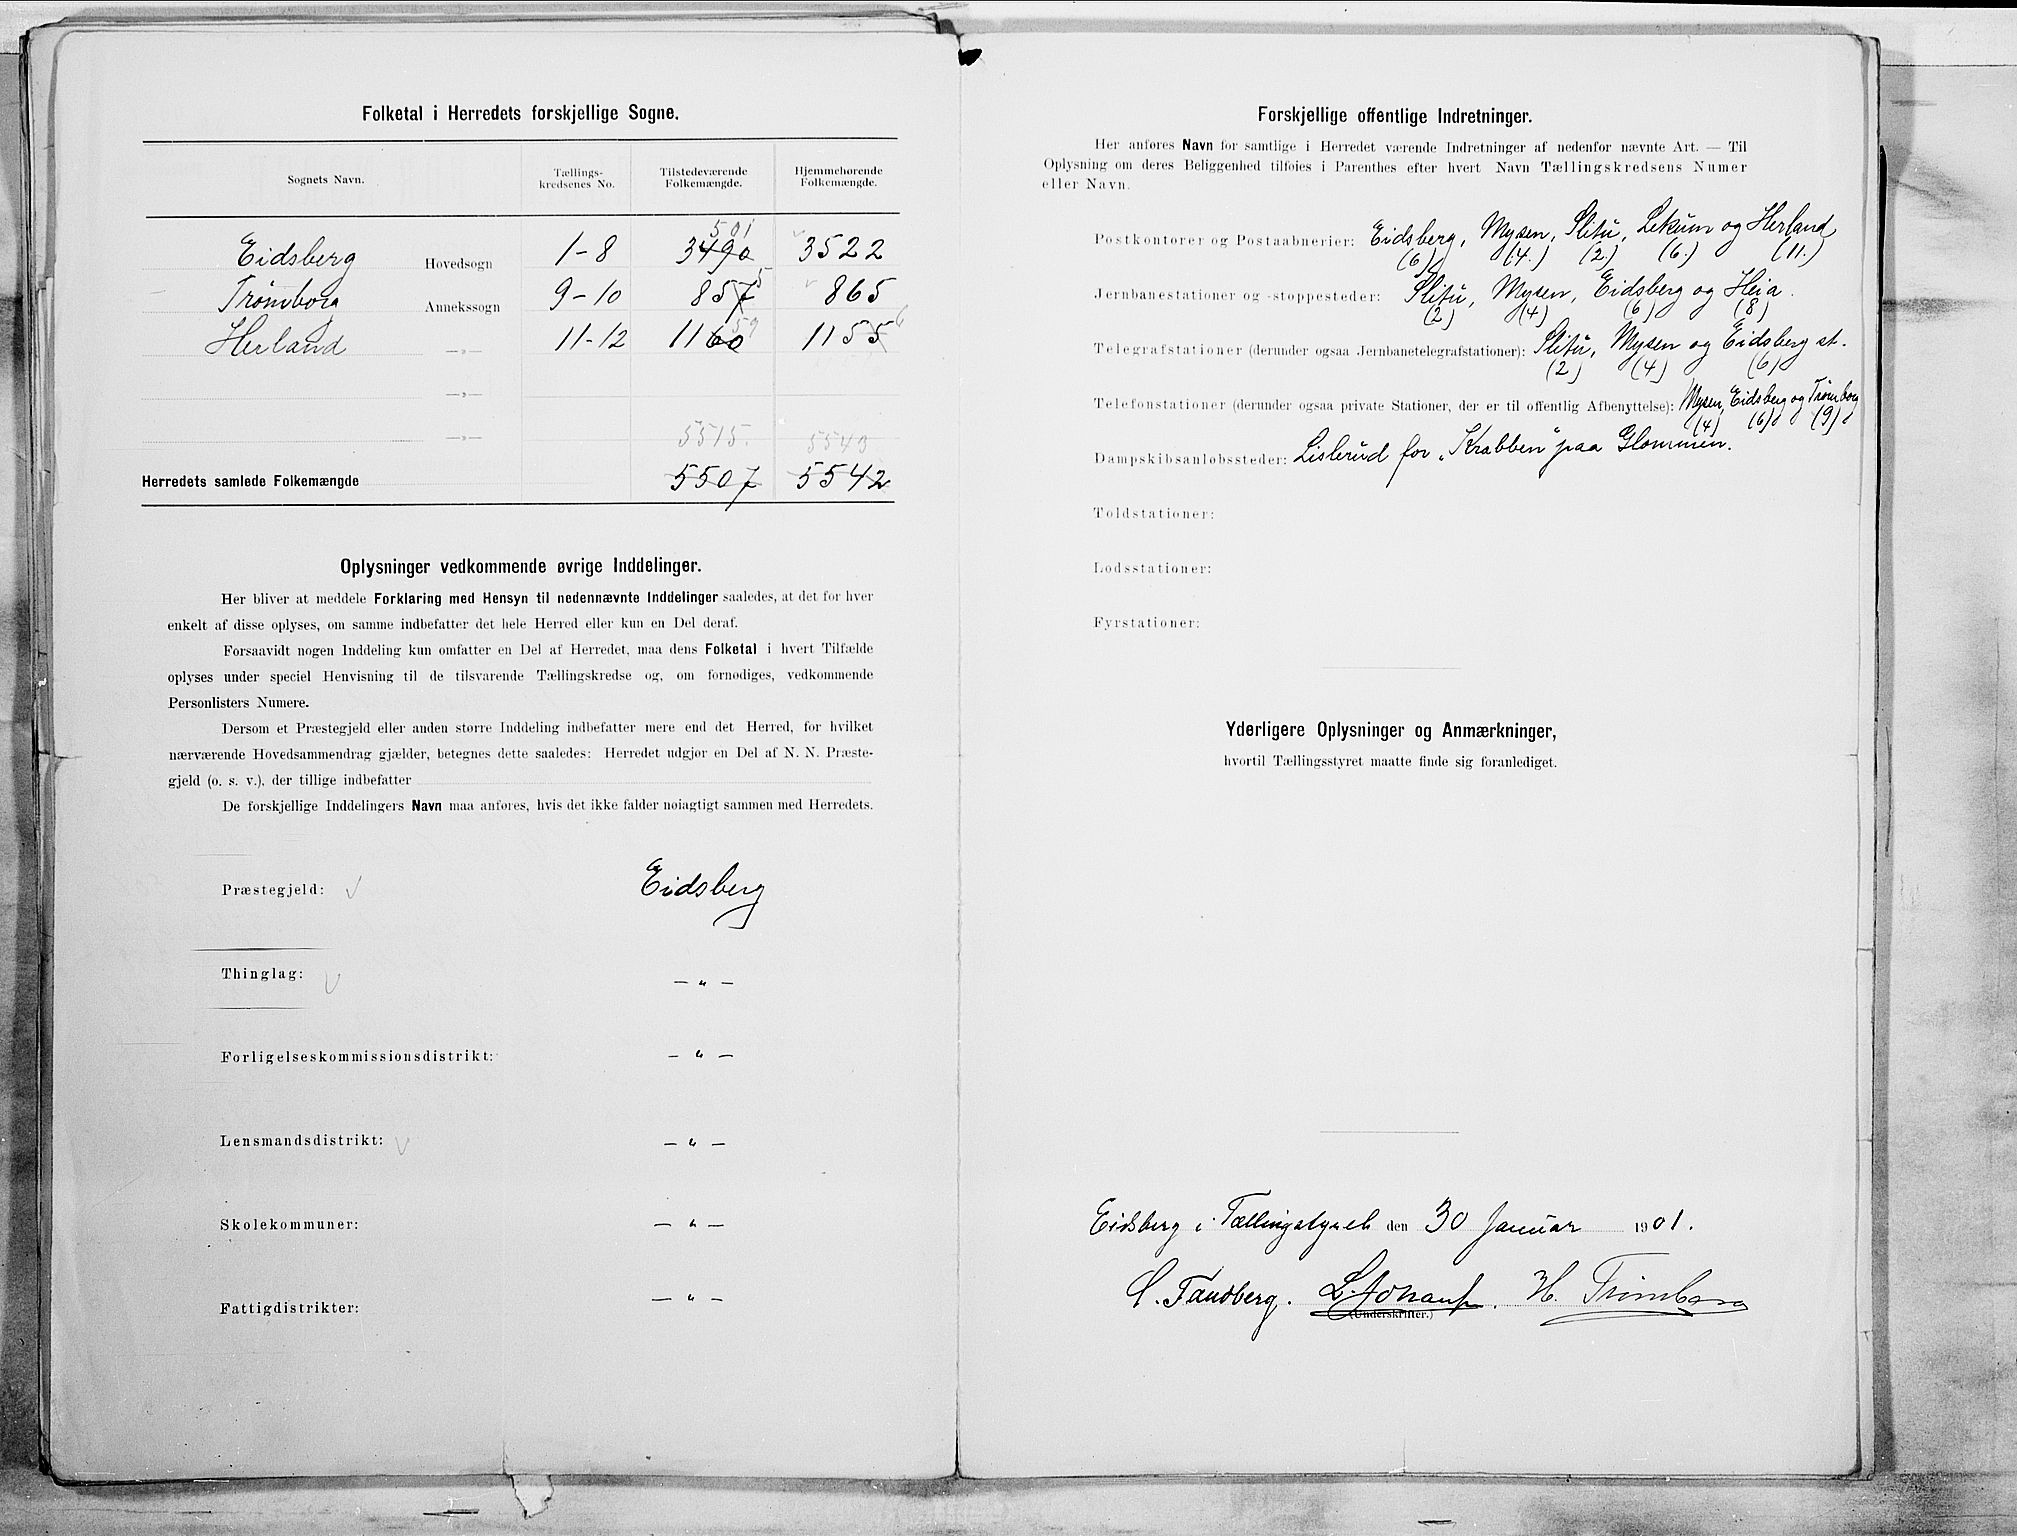 Folketal i Herredets forskjellige Sogne.
Sognets Navn. Tællings-kredsenes No. Tilstedeværende Folkemængde. Hjemmehørende Folkemængde.
501
Eidsberg Hovedsogn 1-8 3490 3522
Trømborg Annekssogn 9-10 857 5 865
Herland —„— 11-12 1160 59 1155 6
—„—
—„— 5515. 5543
Herredets samlede Folkemængde 5507 5542
Oplysninger vedkommende øvrige Inddelinger.
Her bliver at meddele Forklaring med Hensyn til nedennævnte Inddelinger saaledes, at det for hver
enkelt af disse oplyses, om samme indbefatter det hele Herred eller kun en Del deraf.
Forsaavidt nogen Inddeling kun omfatter en Del af Herredet, maa dens Folketal i hvert Tilfælde
oplyses under speciel Henvisning til de tilsvarende Tællingskredse og, om fornødiges, vedkommende
Personlisters Numere.
Dersom et Præstegjeld eller anden større Inddeling indbefatter mere end det Herred, for hvilket
nærværende Hovedsammendrag gjælder, betegnes dette saaledes: Herredet udgjør en Del af N. N. Præste-
gjeld (o. s. v.), der tillige indbefatter
De forskjellige Inddelingers Navn maa anføres, hvis det ikke falder nøiagtigt sammen med Herredets.
Præstegjeld: Eidsberg
Thinglag: — „ —
Forligelseskommissionsdistrikt: — „ —
Lensmandsdistrikt: — „ —
Skolekommuner: — „ —
Fattigdistrikter: — „ —
Forskjellige offentlige Indretninger.
Her anføres Navn for samtlige i Herredet værende Indretninger af nedenfor nævnte Art. — Til
Oplysning om deres Beliggenhed tilføies i Parenthes efter hvert Navn Tællingskredsens Numer
eller Navn.
Postkontorer og Postaabnerier: Eidsberg, Mysen, Slitu, Lekum og Herland
(6) (4.) (2.) (6.) (11.)
Jernbanestationer og -stoppesteder: Slitu, Mysen, Eidsberg og Heia.
(2) (4) (6) (8)
Telegrafstationer (derunder ogsaa Jernbanetelegrafstationer): Slitu, Mysen og Eidsberg st.
(2) (4) (6)
Telefonstationer (derunder ogsaa private Stationer, der er til offentlig Afbenyttelse): Mysen, Eidsberg og Trømborg
(4) (6) (9)
Dampskibsanløbssteder: Lislerud for „Krabben“ paa Glommen.
Toldstationer:
Lodsstationer:
Fyrstationer:
Yderligere Oplysninger og Anmærkninger,
hvortil Tællingsstyret maatte finde sig foranlediget.
Eidsberg i Tællingstyret den 30 Januar 1901.
C. Tandberg. H. Trømborg
(Underskrifter.)